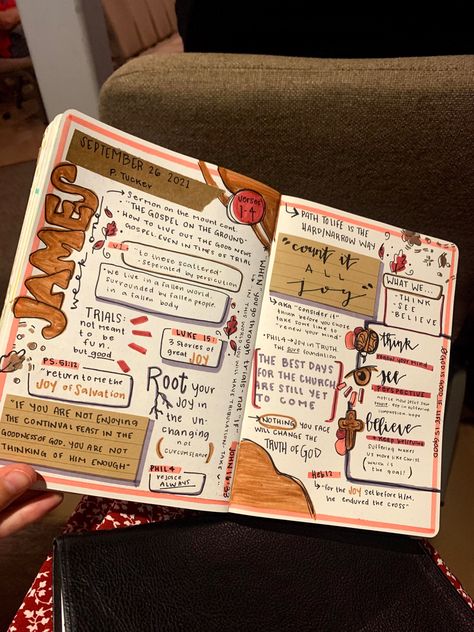 SEPTEMBER 26 2021
P. TUCKEY
JAMES
week one
verses
1-4
Sermon on the Mount cont.
"THE GOSPEL ON THE GROUND"
HOW TO LIVE OUT THE GOOD NEWS
GOSPEL-EVEN IN TIMES OF TRIAL
V.1:
"to those scattered"
seperated by persecution
we live in a fallen world,
surrounded by fallen people,
in a fallen body
TRIALS:
not meant
to be
fun.
but good
LUKE 15:
3 stories of
great JOY
PS. 51:12
"return to me the
Joy of Salvation"
"IF YOU ARE NOT ENJOYING
THE CONTINUAL FEAST IN THE
GOODNESS OF GOD, YOU ARE NOT
THINKING OF HIM ENOUGH"
Root your
Joy in
the un-
changing
(not
circumstance)
PHIL 4
rejoice
ALWAYS
WHEN you go through trials-not if
JOHN 16:33
PATH TO LIFE IS THE
HARD/NARROW WAY
"count it
ALL
joy"
WHAT WE...
THINK
SEE
BELIEVE
AKA "consider it"
think before you choose
take some time to
renew your mind
PHIL 4 JOY IN TRUTH
the BEST foundation
THE BEST DAYS
FOR THE CHURCH
ARE STILL YET
TO COME
NOTHING YOU FACE
WILL CHANGE THE
TRUTH OF GOD
think
guard your mind
see
PERSPECTIVE
believe
KEEP BELIEVING
suffering makes
us more like Christ
which is
the goal!
Heb 12
"for the JOY set before HIM,
he endured the cross"